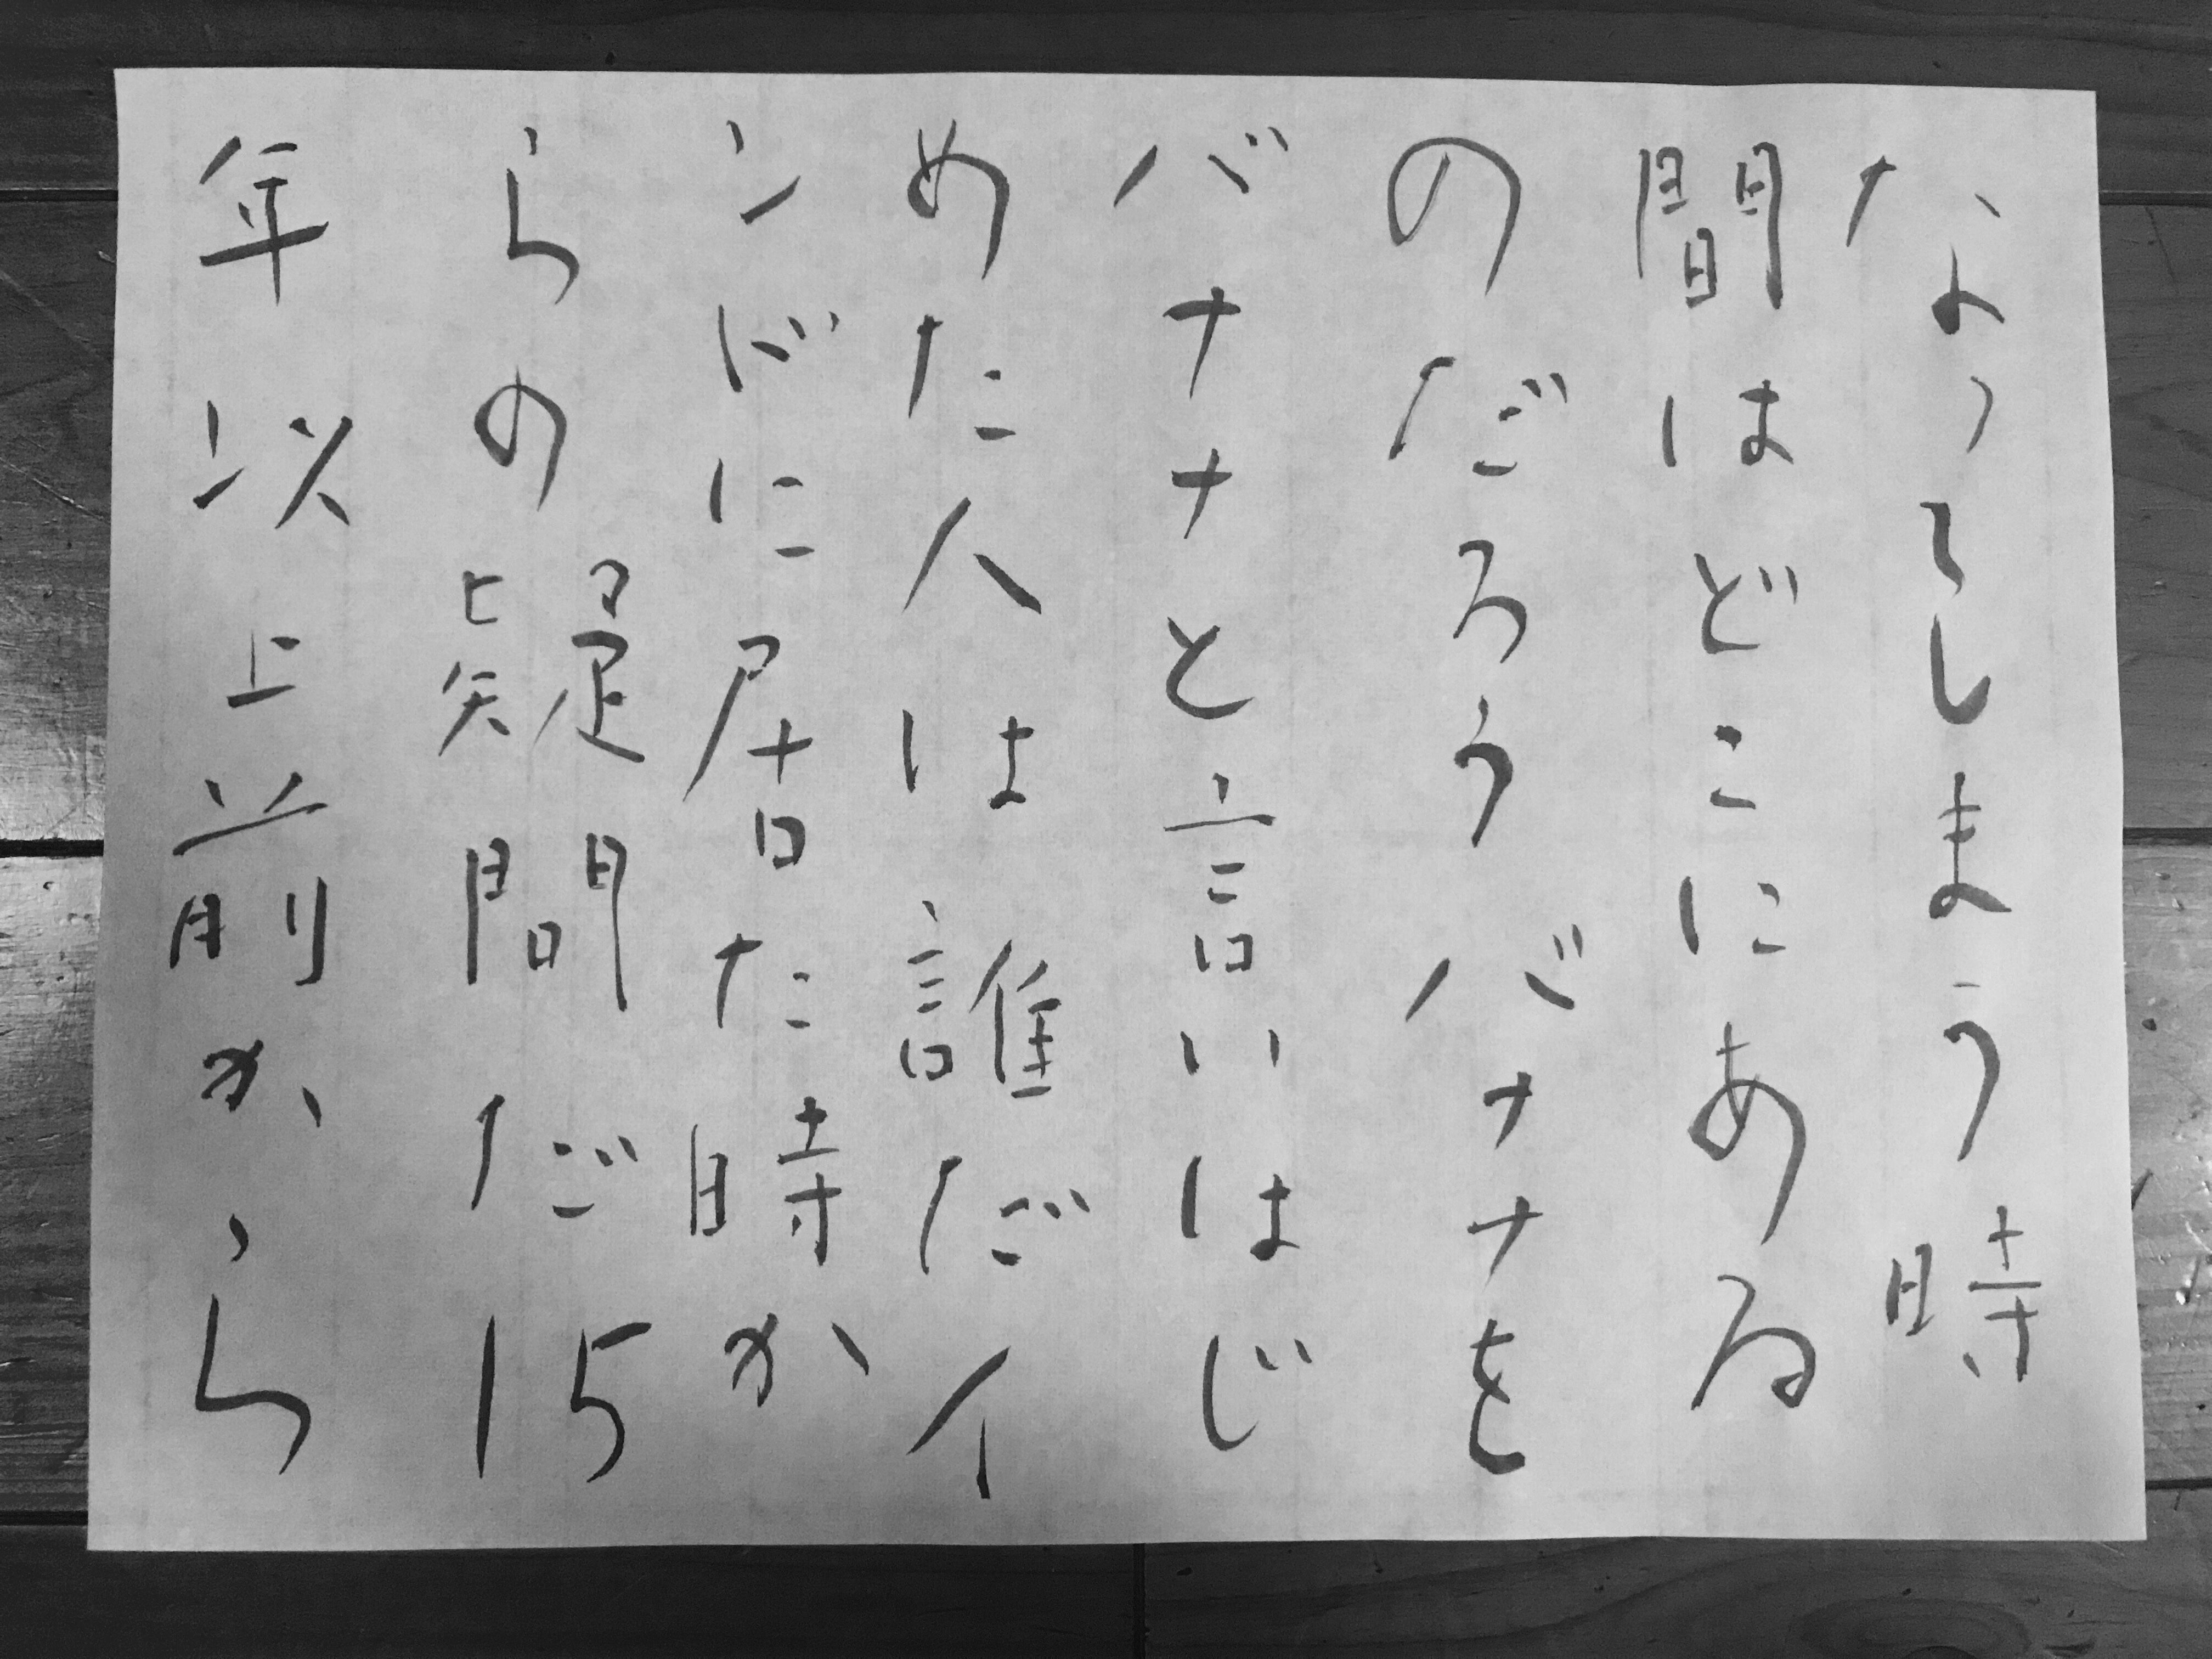 なってしまう時
間はどこにある
のだろうバナナを
バナナと言いはじ
めた人は誰だイ
ンドに居た時か
らの疑問だ15
年以上前から